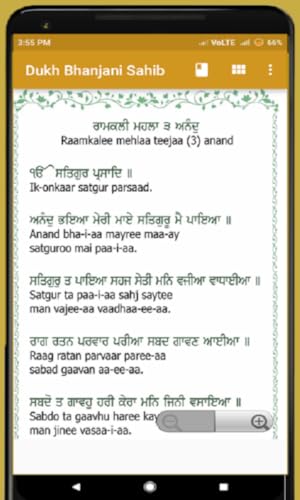 3:55 PM
VoLTE 66%
Dukh Bhanjani Sahib
ਰਾਮਕਲੀ ਮਹਲਾ ੩ ਅਨੰਦੁ
Raamkalee mehlaa teejaa (3) anand
ੴ ਸਤਿਗੁਰ ਪ੍ਰਸਾਦਿ ॥
Ik-onkaar satgur parsaad.
ਅਨੰਦੁ ਭਇਆ ਮੇਰੀ ਮਾਏ ਸਤਿਗੁਰੂ ਮੈ ਪਾਇਆ ॥
Anand bha-i-aa mayree maa-ay
satguroo mai paa-i-aa.
ਸਤਿਗੁਰੁ ਤ ਪਾਇਆ ਸਹਜ ਸੇਤੀ ਮਨਿ ਵਜੀਆ ਵਾਧਾਈਆ ॥
Satgur ta paa-i-aa sahj saytee
man vajee-aa vaadhaa-ee-aa.
ਰਾਗ ਰਤਨ ਪਰਵਾਰ ਪਰੀਆ ਸਬਦ ਗਾਵਣ ਆਈਆ ॥
Raag ratan parvaar paree-aa
sabad gaavan aa-ee-aa.
ਸਬਦੋ ਤ ਗਾਵਹੁ ਹਰੀ ਕੇਰਾ ਮਨਿ ਜਿਨੀ ਵਸਾਇਆ ॥
Sabdo ta gaavhu haree kay
man jinee vasaa-i-aa.